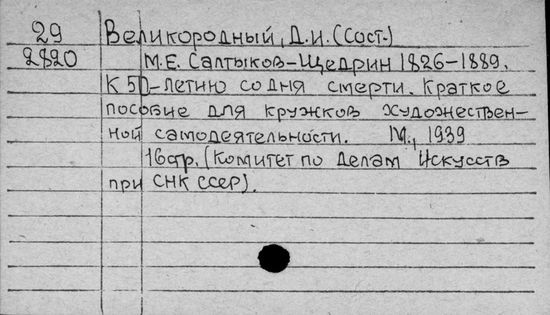 29 Великородный, Д.И. (Сост.)
2820 М.Е. Салтыков-Щедрин 1826-1889.
К 50-летию со дня смерти. Краткое
пособие для кружков художествен-
ной самодеятельности. М., 1939
16стр. (Комитет по делам Искусств
при СНК СССР).